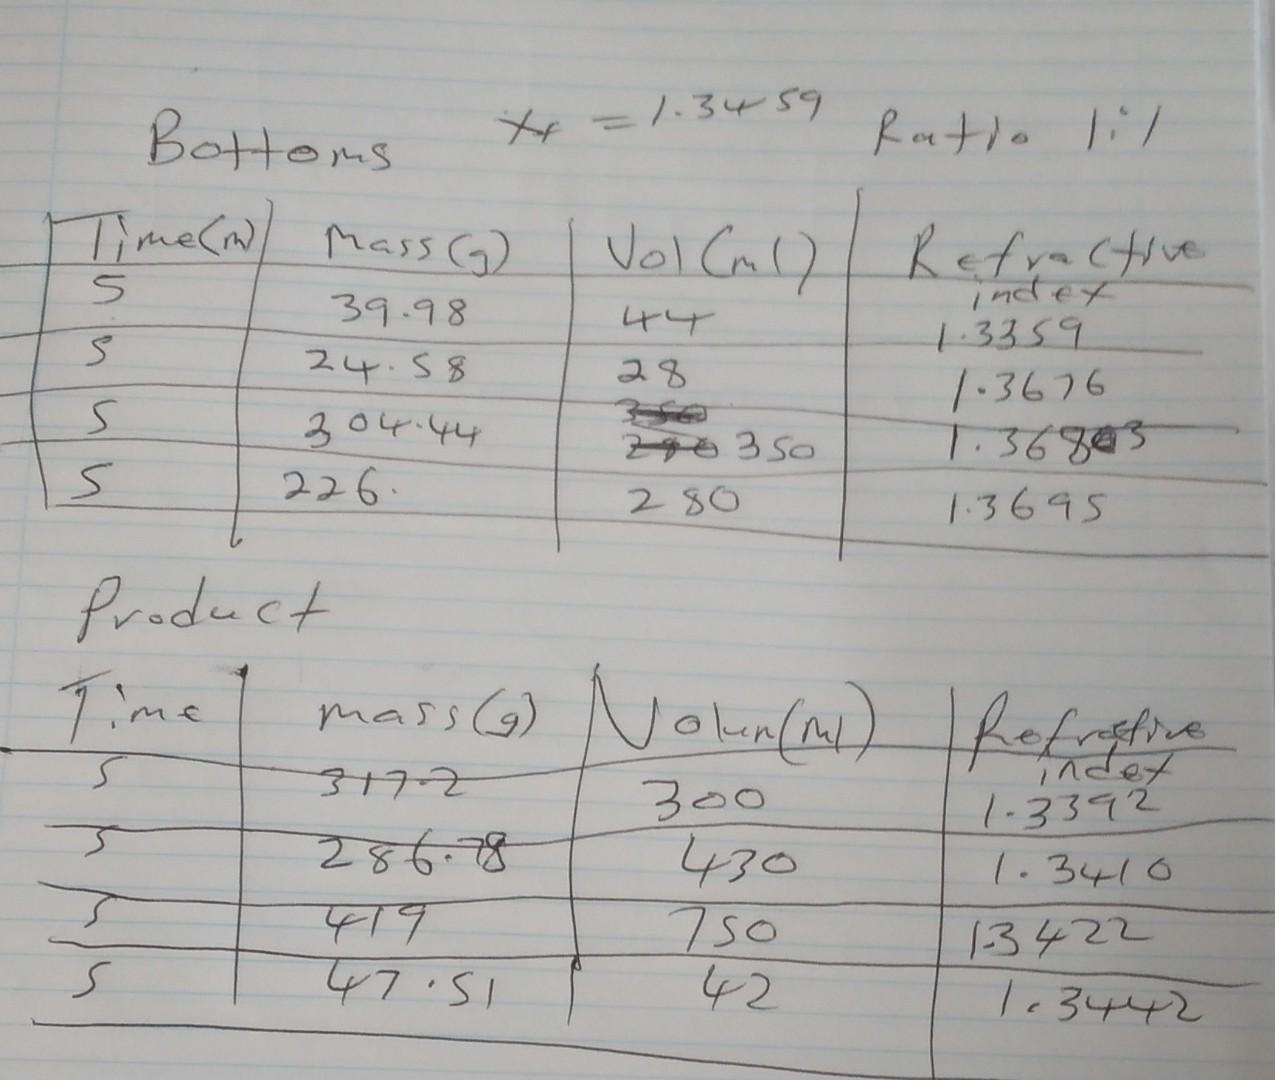 Bottoms xf = 1.3459 Ratio 1:1
Time(m) Mass(g) Vol(ml) Refractive index
5 39.98 44 1.3359
5 24.58 28 1.3676
5 304.44 350 1.36803
5 226. 280 1.3695
Product
Time mass(g) Volum(ml) Refractive index
5 317.2 300 1.3392
5 286.78 430 1.3410
5 419 750 1.3422
5 47.51 42 1.3442